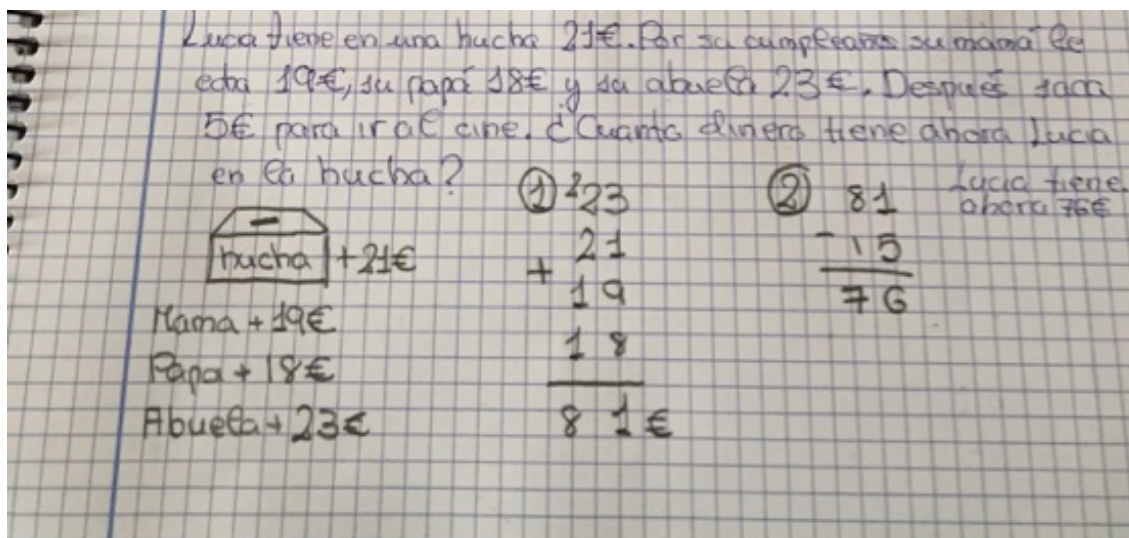 Lucia tiene en una hucha 21€. Por su cumpleaños su mamá le
echa 19€, su papá 18€ y su abuela 23€. Después saca
5€ para ir al cine. ¿Cuanto dinero tiene ahora Lucia
en la hucha?
hucha +21€
Mama + 19€
Papa + 18€
Abuela + 23€
① ²23
21
+ 19
18
8 1 €
② 81
- 15
76
Lucia tiene
ahora 76€